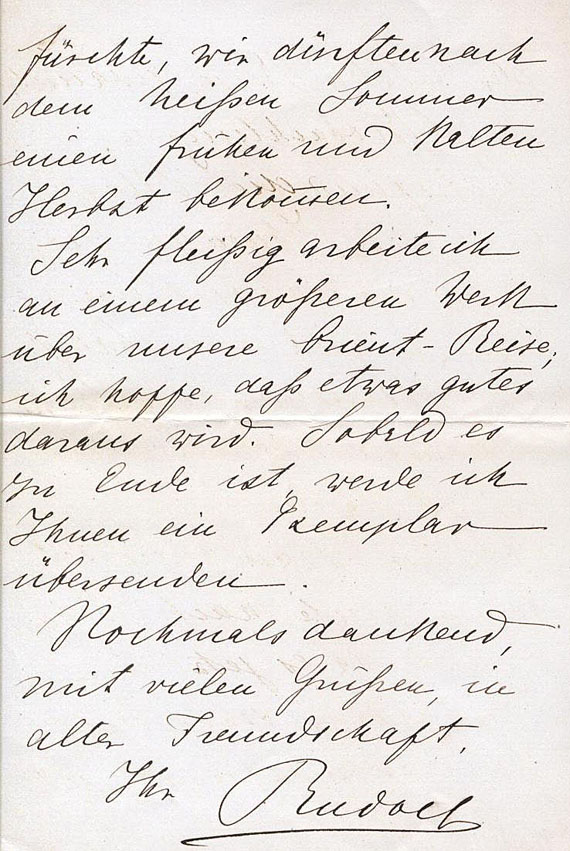 fürchte, wir dürften nach
dem heißen Sommer
einen frühen und kalten
Herbst bekom̅en.
Sehr fleißig arbeite ich
an einem größeren Werk
über unsere Orient-Reise;
ich hoffe, daß etwas gutes
daraus wird. Sobald es
zu Ende ist, werde ich
Ihnen ein Exemplar
übersenden.
Nochmals dankend,
mit vielen Grüßen, in
alter Freundschaft,
Ihr Rudolf